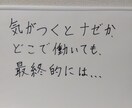 気がつくとナゼか、
どこで働いても、
最終的には…